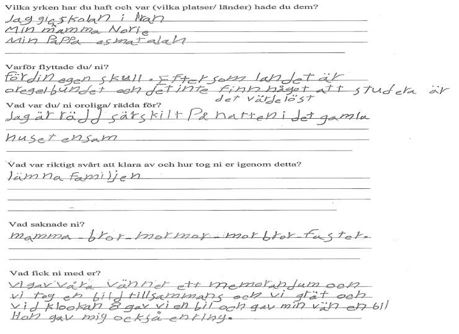 Vilka yrken har du haft och var (vilka platser/ länder) hade du dem?
Jag gick skolan i Iran
Min mamma Norie
Min Pappa esmatalah
Varför flyttade du/ ni?
för din egen skull. Eftersom landet är
oregelbundet och det inte finn något att studera är
det värdelöst
Vad var du/ ni oroliga/ rädda för?
Jag är rädd särskilt På natten i det gamla
huset ensam
Vad var riktigt svårt att klara av och hur tog ni er igenom detta?
lämna familjen
Vad saknade ni?
mamma-bror-mormor-morbror-faster.
Vad fick ni med er?
vi gav våra vänner ett memorandum och
vi tog en bild tillsammans och vi grät och
vid klockan 8 gav vi en bil och gav min vän en bil
Hon gav mig också en ring.